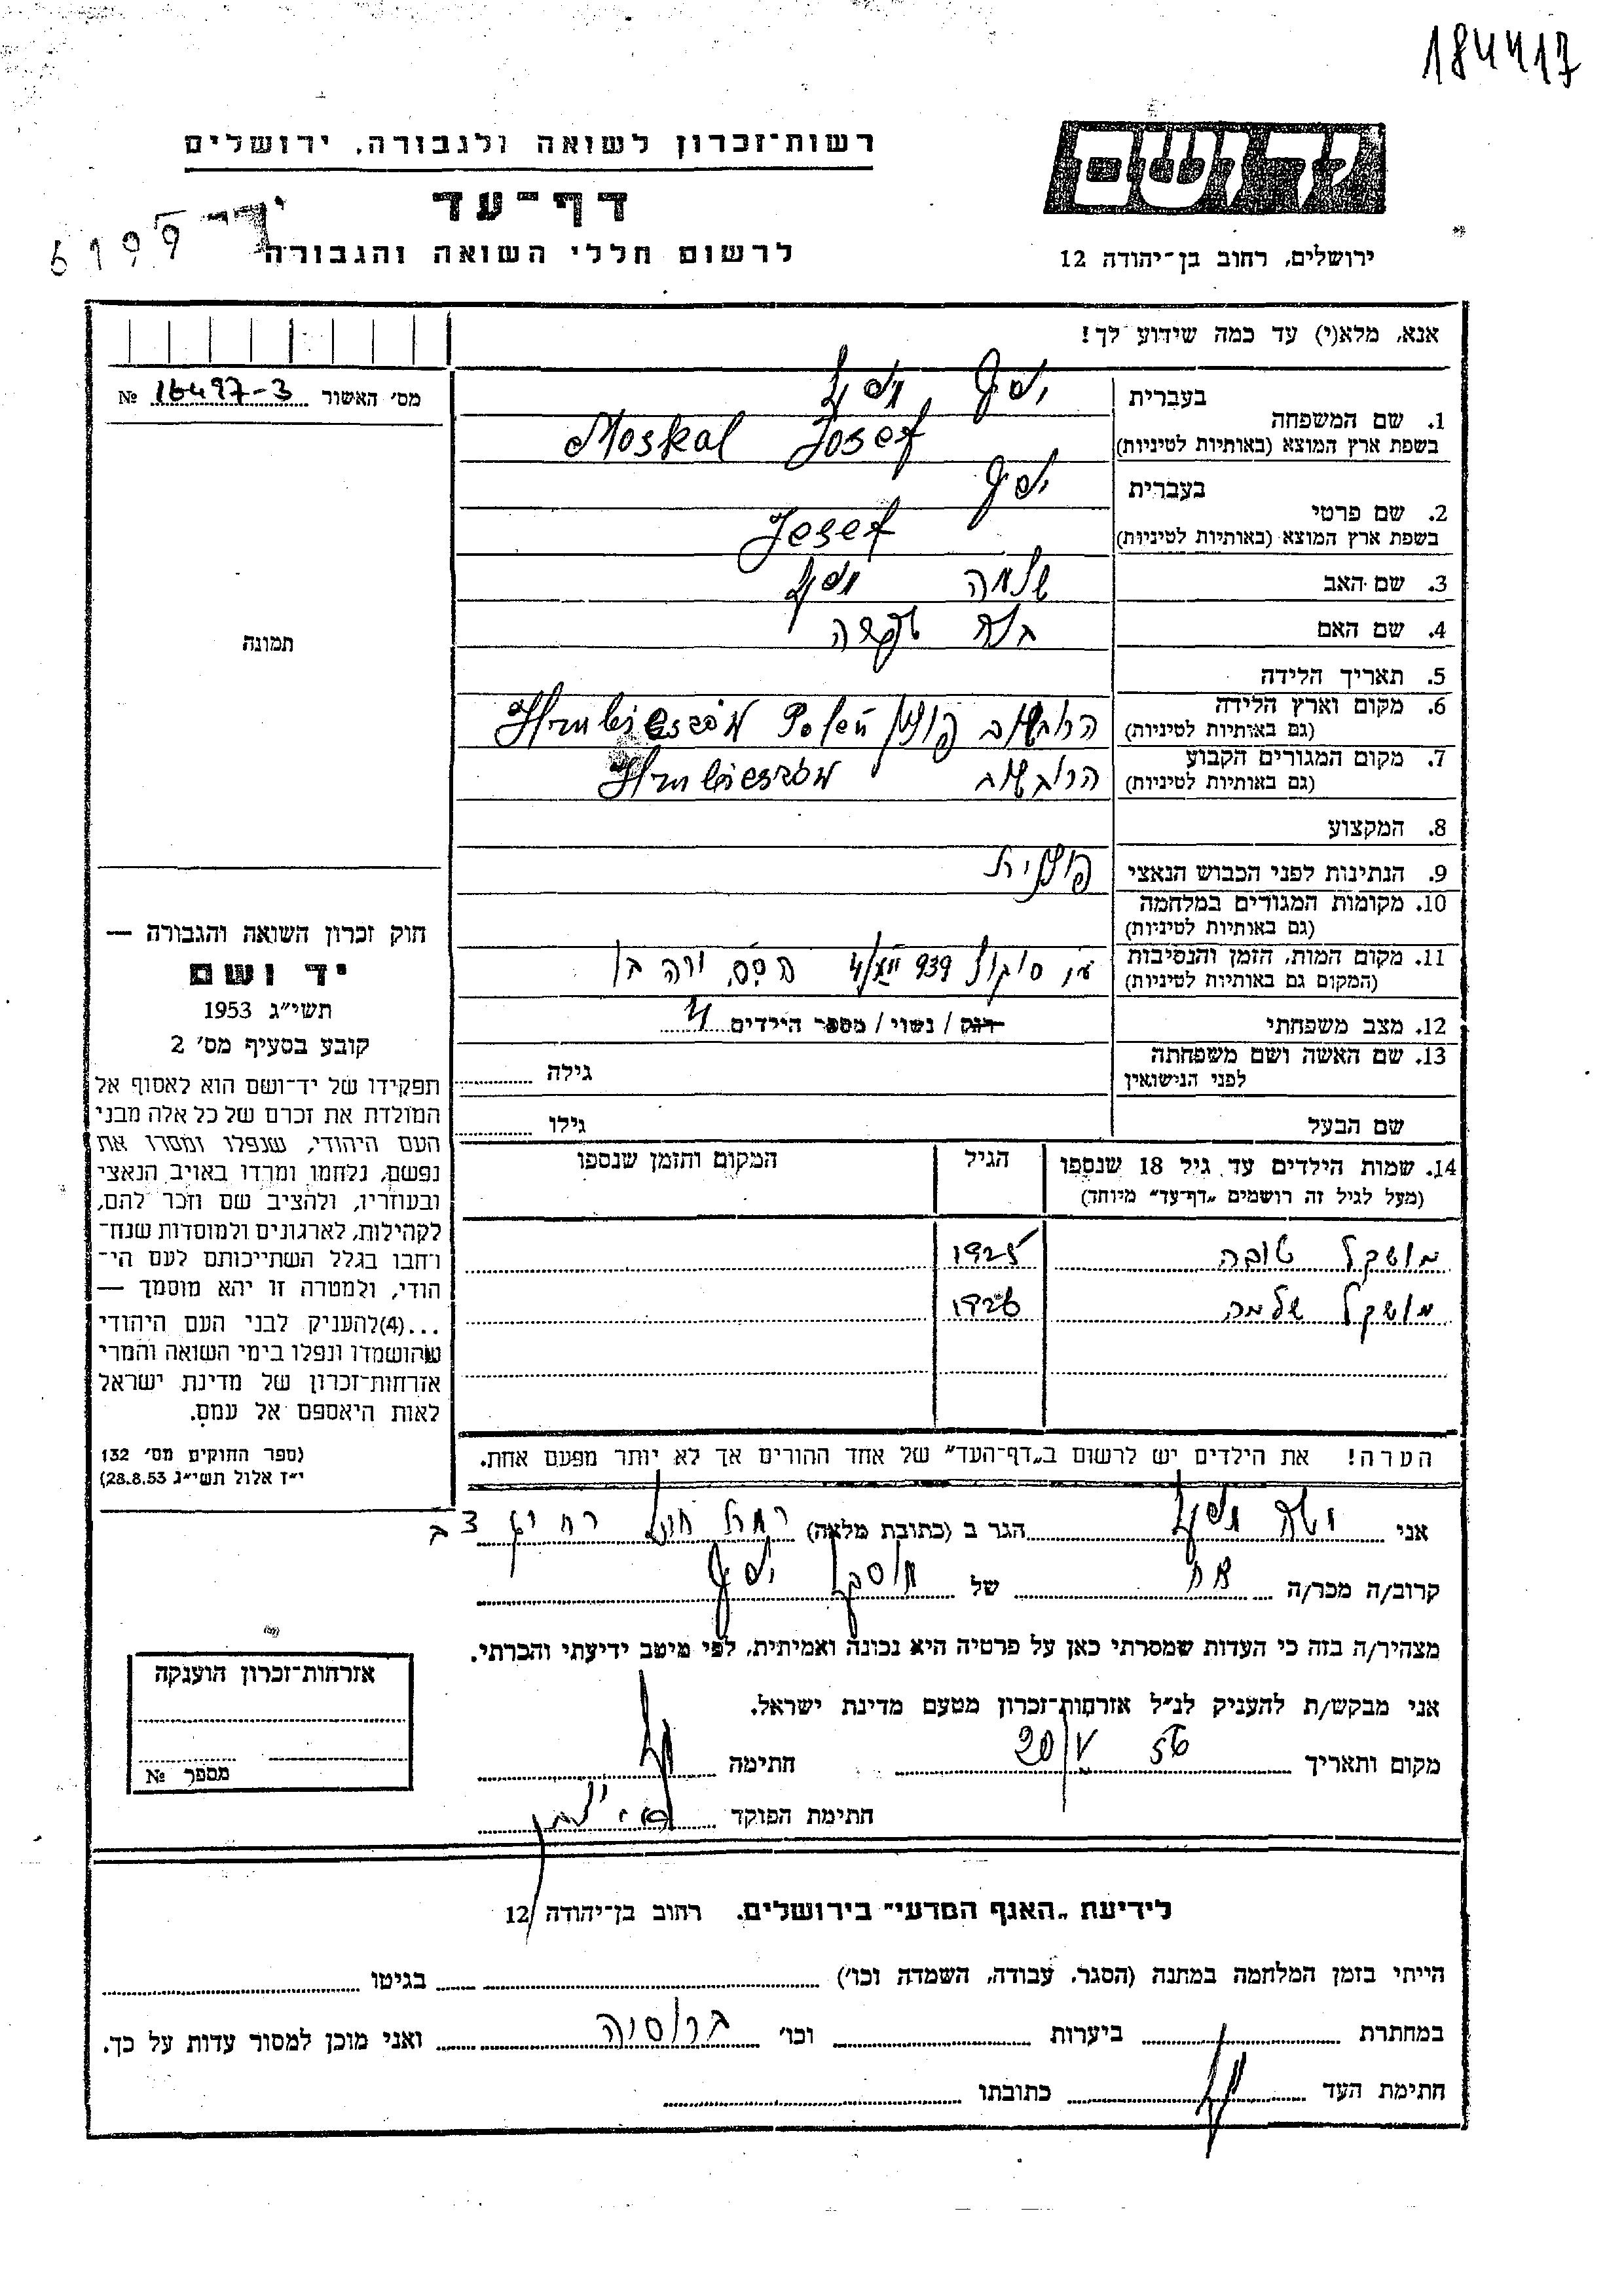 184417
רשות־זכרון לשואה ולגבורה, ירושלים
דף־עד
לרשום חללי השואה והגבורה
6199
יד ושם
ירושלים, רחוב בן־יהודה 12
אנא, מלא(י) עד כמה שידוע לך!
מס' האשור 16497-3 №
בעברית יוסף
1. שם המשפחה
בשפת ארץ המוצא (באותיות לטיניות) Moskal Josef
בעברית יוסף
2. שם פרטי
בשפת ארץ המוצא (באותיות לטיניות) Josef
3. שם האב שלמה
4. שם האם
5. תאריך הלידה
6. מקום וארץ הלידה
(גם באותיות לטיניות) הרובשוב פולין
7. מקום המגורים הקבוע
(גם באותיות לטיניות) הרובשוב
8. המקצוע
9. הנתינות לפני הכבוש הנאצי פולנית
10. מקומות המגורים במלחמה
(גם באותיות לטיניות)
11. מקום המות, הזמן והנסיבות
(המקום גם באותיות לטיניות) 939
12. מצב משפחתי רווק / נשוי / מספר הילדים 4
13. שם האשה ושם משפחתה
לפני הנישואין גילה
שם הבעל גילו
תמונה
חוק זכרון השואה והגבורה —
יד ושם
תשי"ג 1953
קובע בסעיף מס' 2
תפקידו של יד־ושם הוא לאסוף אל
המולדת את זכרם של כל אלה מבני
העם היהודי, שנפלו ומסרו את
נפשם, נלחמו ומרדו באויב הנאצי
ובעוזריו, ולהציב שם וזכר להם,
לקהילות, לארגונים ולמוסדות שנח־
רבו בגלל השתייכותם לעם הי־
הודי, ולמטרה זו יהא מוסמך —
...(4)להעניק לבני העם היהודי
שהושמדו ונפלו בימי השואה והמרי
אזרחות־זכרון של מדינת ישראל
לאות היאספם אל עמם.
(ספר החוקים מס' 132
י"ז אלול תשי"ג 28.8.53)
14. שמות הילדים עד גיל 18 שנספו הגיל המקום והזמן שנספו
(מעל לגיל זה רושמים „דף־עד" מיוחד)
מושקל טובה 1925
מושקל שלמה 1926
הערה! את הילדים יש לרשום ב„דף־העד" של אחד ההורים אך לא יותר מפעם אחת.
אני הגר ב (כתובת מלאה)
קרוב/ה מכר/ה אח של מוסקל יוסף
מצהיר/ה בזה כי העדות שמסרתי כאן על פרטיה היא נכונה ואמיתית, לפי מיטב ידיעתי והכרתי.
אני מבקש/ת להעניק לנ"ל אזרחות־זכרון מטעם מדינת ישראל.
מקום ותאריך 20/V 56 חתימה
חתימת הפוקד
אזרחות־זכרון הוענקה
מספר №
לידיעת „האגף המדעי" בירושלים, רחוב בן־יהודה 12
הייתי בזמן המלחמה במחנה (הסגר, עבודה, השמדה וכו') בגיטו
במחתרת ביערות וכו' ברוסיה ואני מוכן למסור עדות על כך.
חתימת העד כתובתו